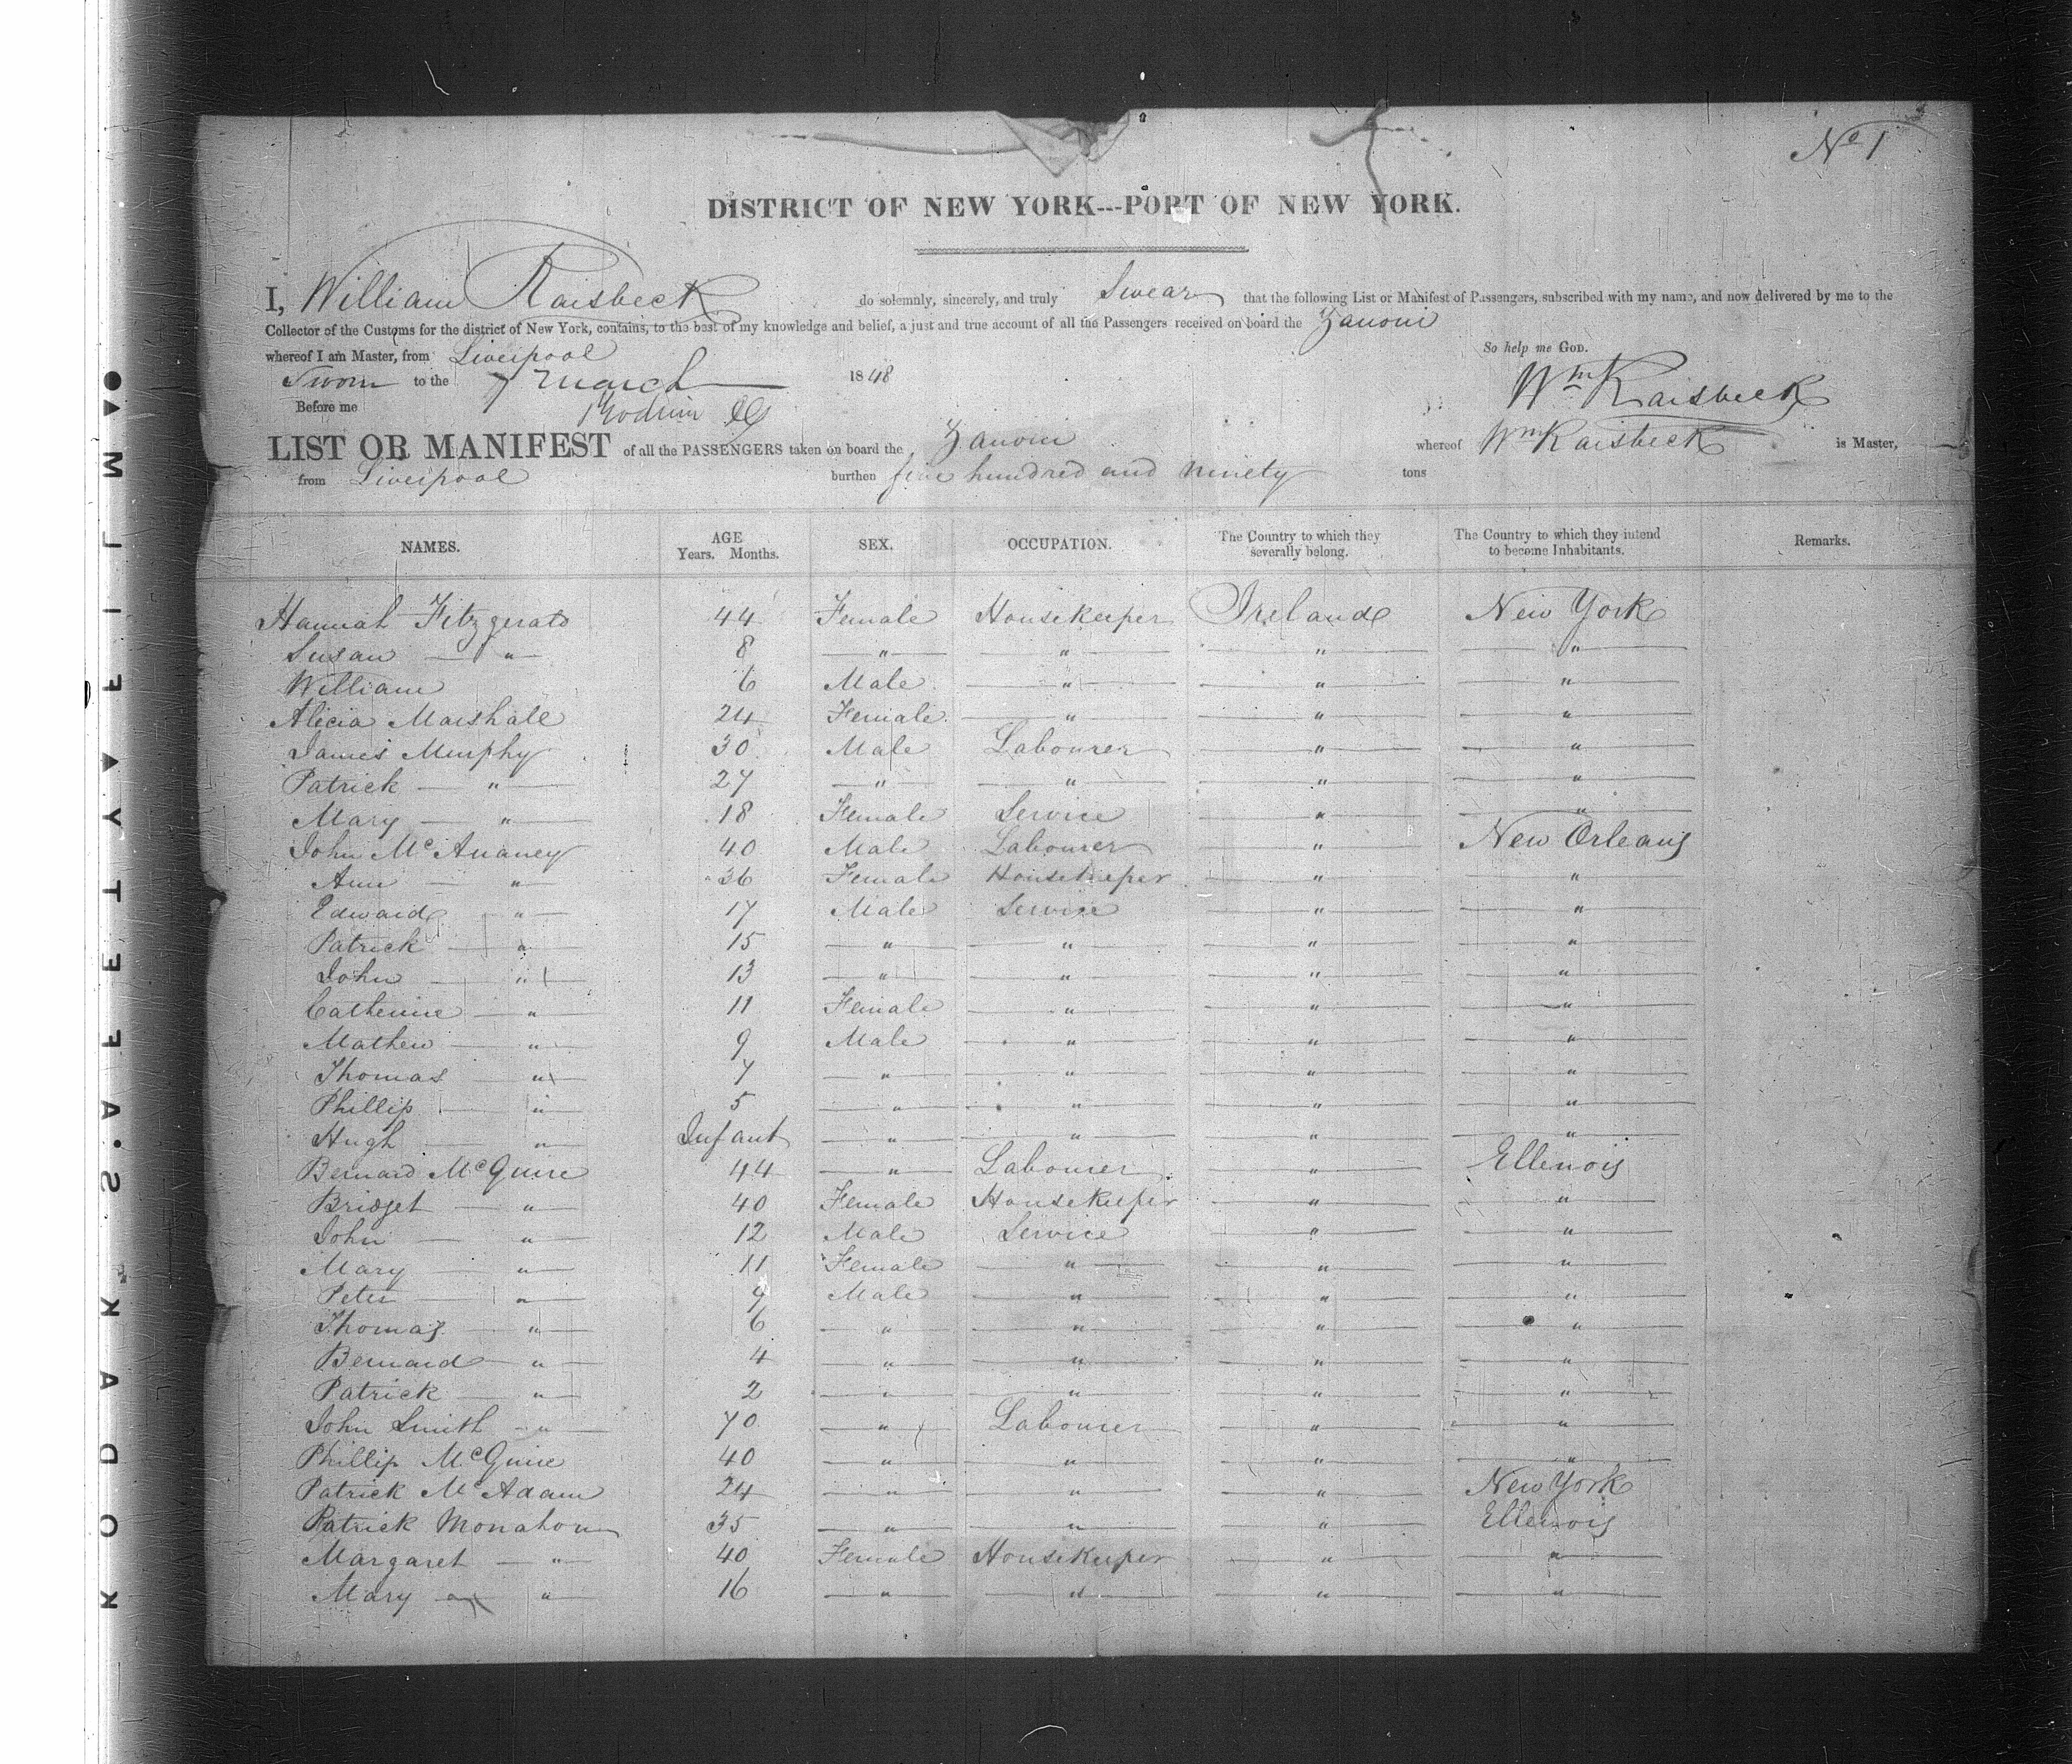 Nº 1
DISTRICT OF NEW YORK---PORT OF NEW YORK.
I, William Raisbeck do solemnly, sincerely, and truly Swear that the following List or Manifest of Passengers, subscribed with my name, and now delivered by me to the
Collector of the Customs for the district of New York, contains, to the best of my knowledge and belief, a just and true account of all the Passengers received on board the Zanoni
whereof I am Master, from Liverpool So help me GOD.
Sworn to the 7 March 1848 Wm Raisbeck
Before me
LIST OR MANIFEST of all the PASSENGERS taken on board the Zanoni whereof Wm Raisbeck is Master,
from Liverpool burthen five hundred and ninety tons
NAMES. AGE Years. Months. SEX. OCCUPATION. The Country to which they severally belong. The Country to which they intend to become Inhabitants. Remarks.
Hannah Fitzgerald 44 Female Housekeeper Ireland New York
Susan — " 8 — " — — " — — " — — " —
William 6 Male — " — — " — — " —
Alicia Marshall 24 Female — " — — " — — " —
James Murphy 30 Male Labourer — " — — " —
Patrick — " — 27 — " — — " — — " — — " —
Mary — " — 18 Female Service — " — — " —
John McAnaney 40 Male Labourer — " — New Orleans
Ann — " — 36 Female Housekeeper — " — — " —
Edward — " — 17 Male Service — " — — " —
Patrick — " — 15 — " — — " — — " — — " —
John — " — 13 — " — — " — — " — — " —
Catherine — " — 11 Female — " — — " — — " —
Mathew — " — 9 Male — " — — " — — " —
Thomas — " — 7 — " — — " — — " — — " —
Phillip — " — 5 — " — — " — — " — — " —
Hugh — " — Infant — " — — " — — " — — " —
Bernard McGuire 44 — " — Labourer — " — Ellenois
Bridget — " — 40 Female Housekeeper — " — — " —
John — " — 12 Male Service — " — — " —
Mary — " — 11 Female — " — — " — — " —
Peter — " — 9 Male — " — — " — — " —
Thomas — " — 6 — " — — " — — " — — " —
Bernard — " — 4 — " — — " — — " — — " —
Patrick — " — 2 — " — — " — — " — — " —
John Smith — " — 70 — " — Labourer — " — — " —
Phillip McGuire 40 — " — — " — — " — — " —
Patrick McAdam 24 — " — — " — — " — New York
Patrick Monahon 35 — " — — " — — " — Ellenois
Margaret — " — 40 Female Housekeeper — " — — " —
Mary — " — 16 — " — — " — — " — — " —
KODAK·S·AFETY▲FILM